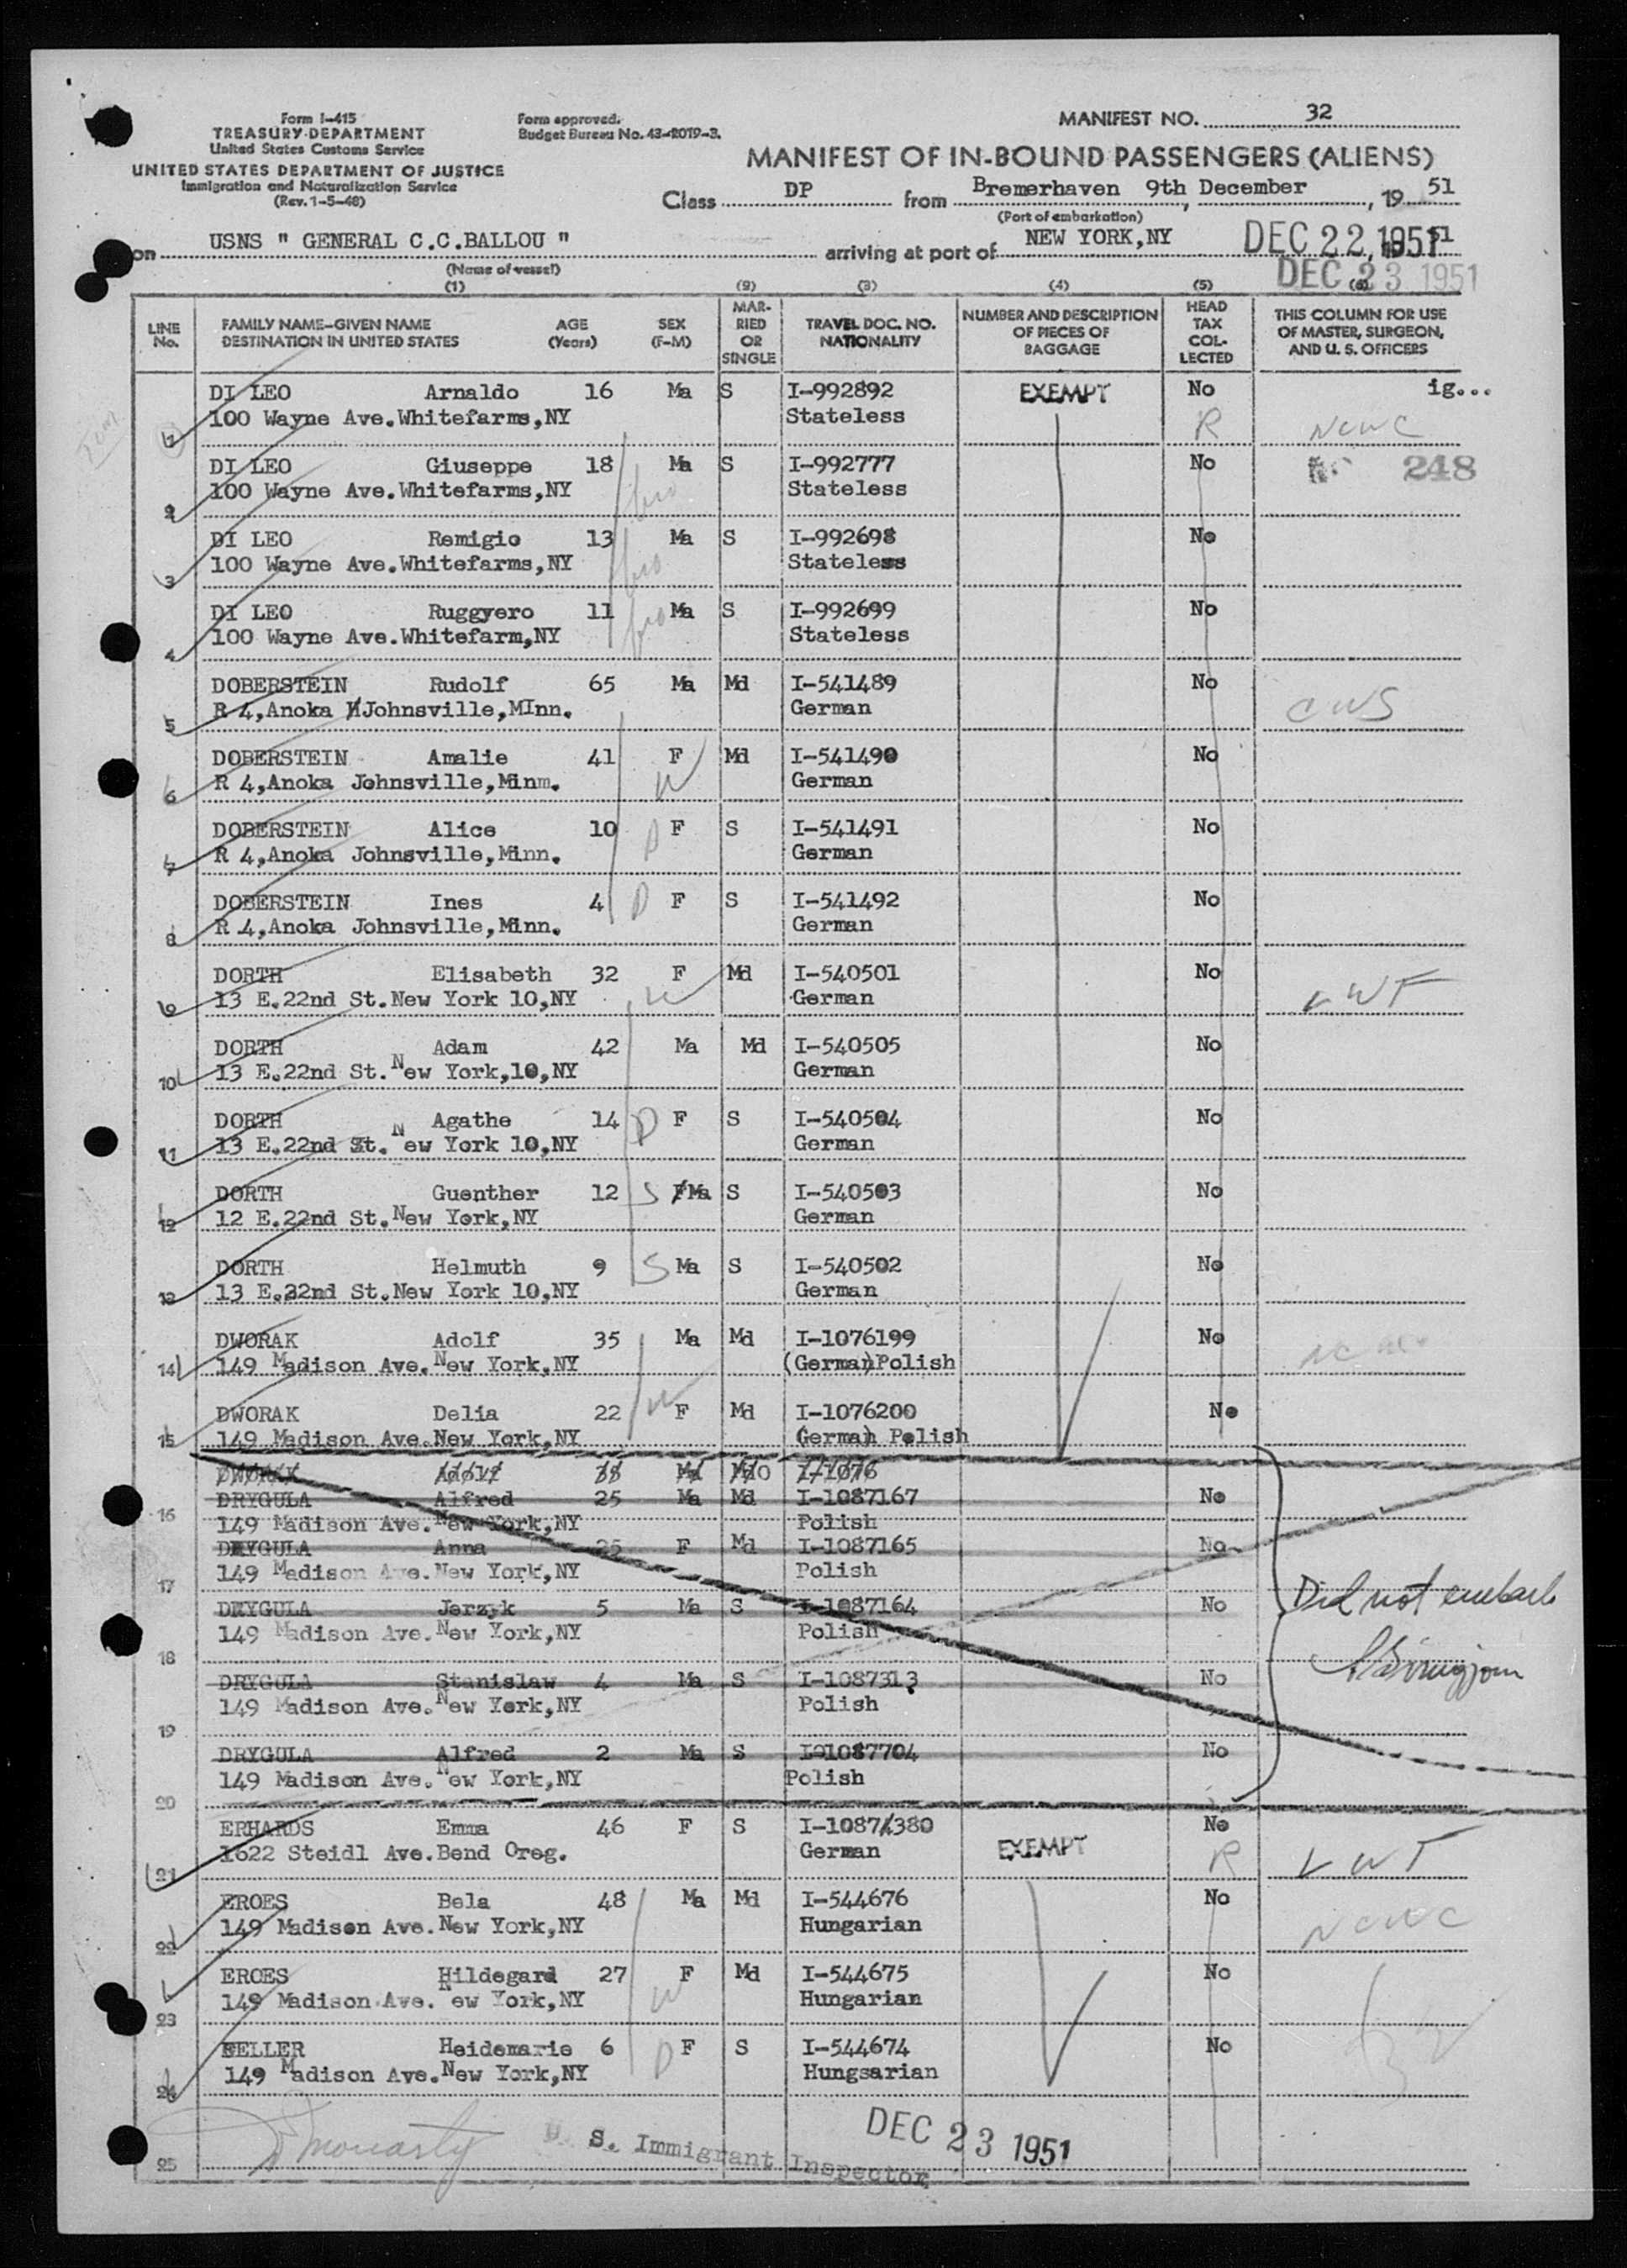 Form I-415
TREASURY DEPARTMENT
United States Customs Service
UNITED STATES DEPARTMENT OF JUSTICE
Immigration and Naturalization Service
(Rev. 1-5-48)
Form approved.
Budget Bureau No. 43-R019-3.
MANIFEST NO. 32
MANIFEST OF IN-BOUND PASSENGERS (ALIENS)
Class DP from Bremerhaven 9th December, 19 51
(Port of embarkation)
on USNS " GENERAL C.C.BALLOU " arriving at port of NEW YORK,NY DEC 22, 1951
(Name of vessel)
DEC 23 1951
(1) (2) (3) (4) (5) (6)
LINE No. FAMILY NAME-GIVEN NAME DESTINATION IN UNITED STATES AGE (Years) SEX (F-M) MARRIED OR SINGLE TRAVEL DOC. NO. NATIONALITY NUMBER AND DESCRIPTION OF PIECES OF BAGGAGE HEAD TAX COLLECTED THIS COLUMN FOR USE OF MASTER, SURGEON, AND U. S. OFFICERS
DI LEO Arnaldo 16 Ma S I-992892 EXEMPT No ig...
1 100 Wayne Ave.Whitefarms,NY Stateless R NCWC
DI LEO Giuseppe 18 Ma S I-992777 No 248
2 100 Wayne Ave.Whitefarms,NY bro Stateless
DI LEO Remigio 13 Ma S I-992698 No
3 100 Wayne Ave.Whitefarms,NY bro Stateless
DI LEO Ruggyero 11 Ma S I-992699 No
4 100 Wayne Ave.Whitefarm,NY bro Stateless
DOBERSTEIN Rudolf 65 Ma Md I-541489 No
5 R 4,Anoka Johnsville,MInn. German CWS
DOBERSTEIN Amalie 41 F Md I-541490 No
6 R 4,Anoka Johnsville,Minm. W German
DOBERSTEIN Alice 10 D F S I-541491 No
7 R 4,Anoka Johnsville,Minn. German
DOBERSTEIN Ines 4 D F S I-541492 No
8 R 4,Anoka Johnsville,Minn. German
DORTH Elisabeth 32 F Md I-540501 No
9 13 E.22nd St.New York 10,NY W German LWF
DORTH Adam 42 Ma Md I-540505 No
10 13 E.22nd St.New York,10,NY German
DORTH Agathe 14 D F S I-540504 No
11 13 E.22nd St. New York 10,NY German
DORTH Guenther 12 S Ma S I-540503 No
12 12 E.22nd St.New York,NY German
DORTH Helmuth 9 S Ma S I-540502 No
13 13 E.22nd St.New York 10,NY German
DWORAK Adolf 35 Ma Md I-1076199 No
14 149 Madison Ave.New York,NY (German)Polish
DWORAK Delia 22 W F Md I-1076200 No
15 149 Madison Ave.New York,NY (German) Polish
DRYGULA Alfred 25 Ma Md I-1087167 No
16 149 Madison Ave.New York,NY Polish
DRYGULA Anna 25 F Md I-1087165 No
17 149 Madison Ave.New York,NY Polish
DRYGULA Jerzyk 5 Ma S I-1087164 No Did not embark
18 149 Madison Ave.New York,NY Polish
DRYGULA Stanislaw 4 Ma S I-1087313 No
19 149 Madison Ave.New York,NY Polish
DRYGULA Alfred 2 Ma S I-1087704 No
20 149 Madison Ave.New York,NY Polish
ERHARDS Emma 46 F S I-1087380 No
21 1622 Steidl Ave.Bend Oreg. German EXEMPT R LWF
EROES Bela 48 Ma Md I-544676 No
22 149 Madison Ave.New York,NY Hungarian NCWC
EROES Hildegard 27 F Md I-544675 No
23 149 Madison Ave. New York,NY W Hungarian
HELLER Heidemarie 6 D F S I-544674 No
24 149 Madison Ave.New York,NY Hungsarian
25 U. S. Immigrant Inspector DEC 23 1951